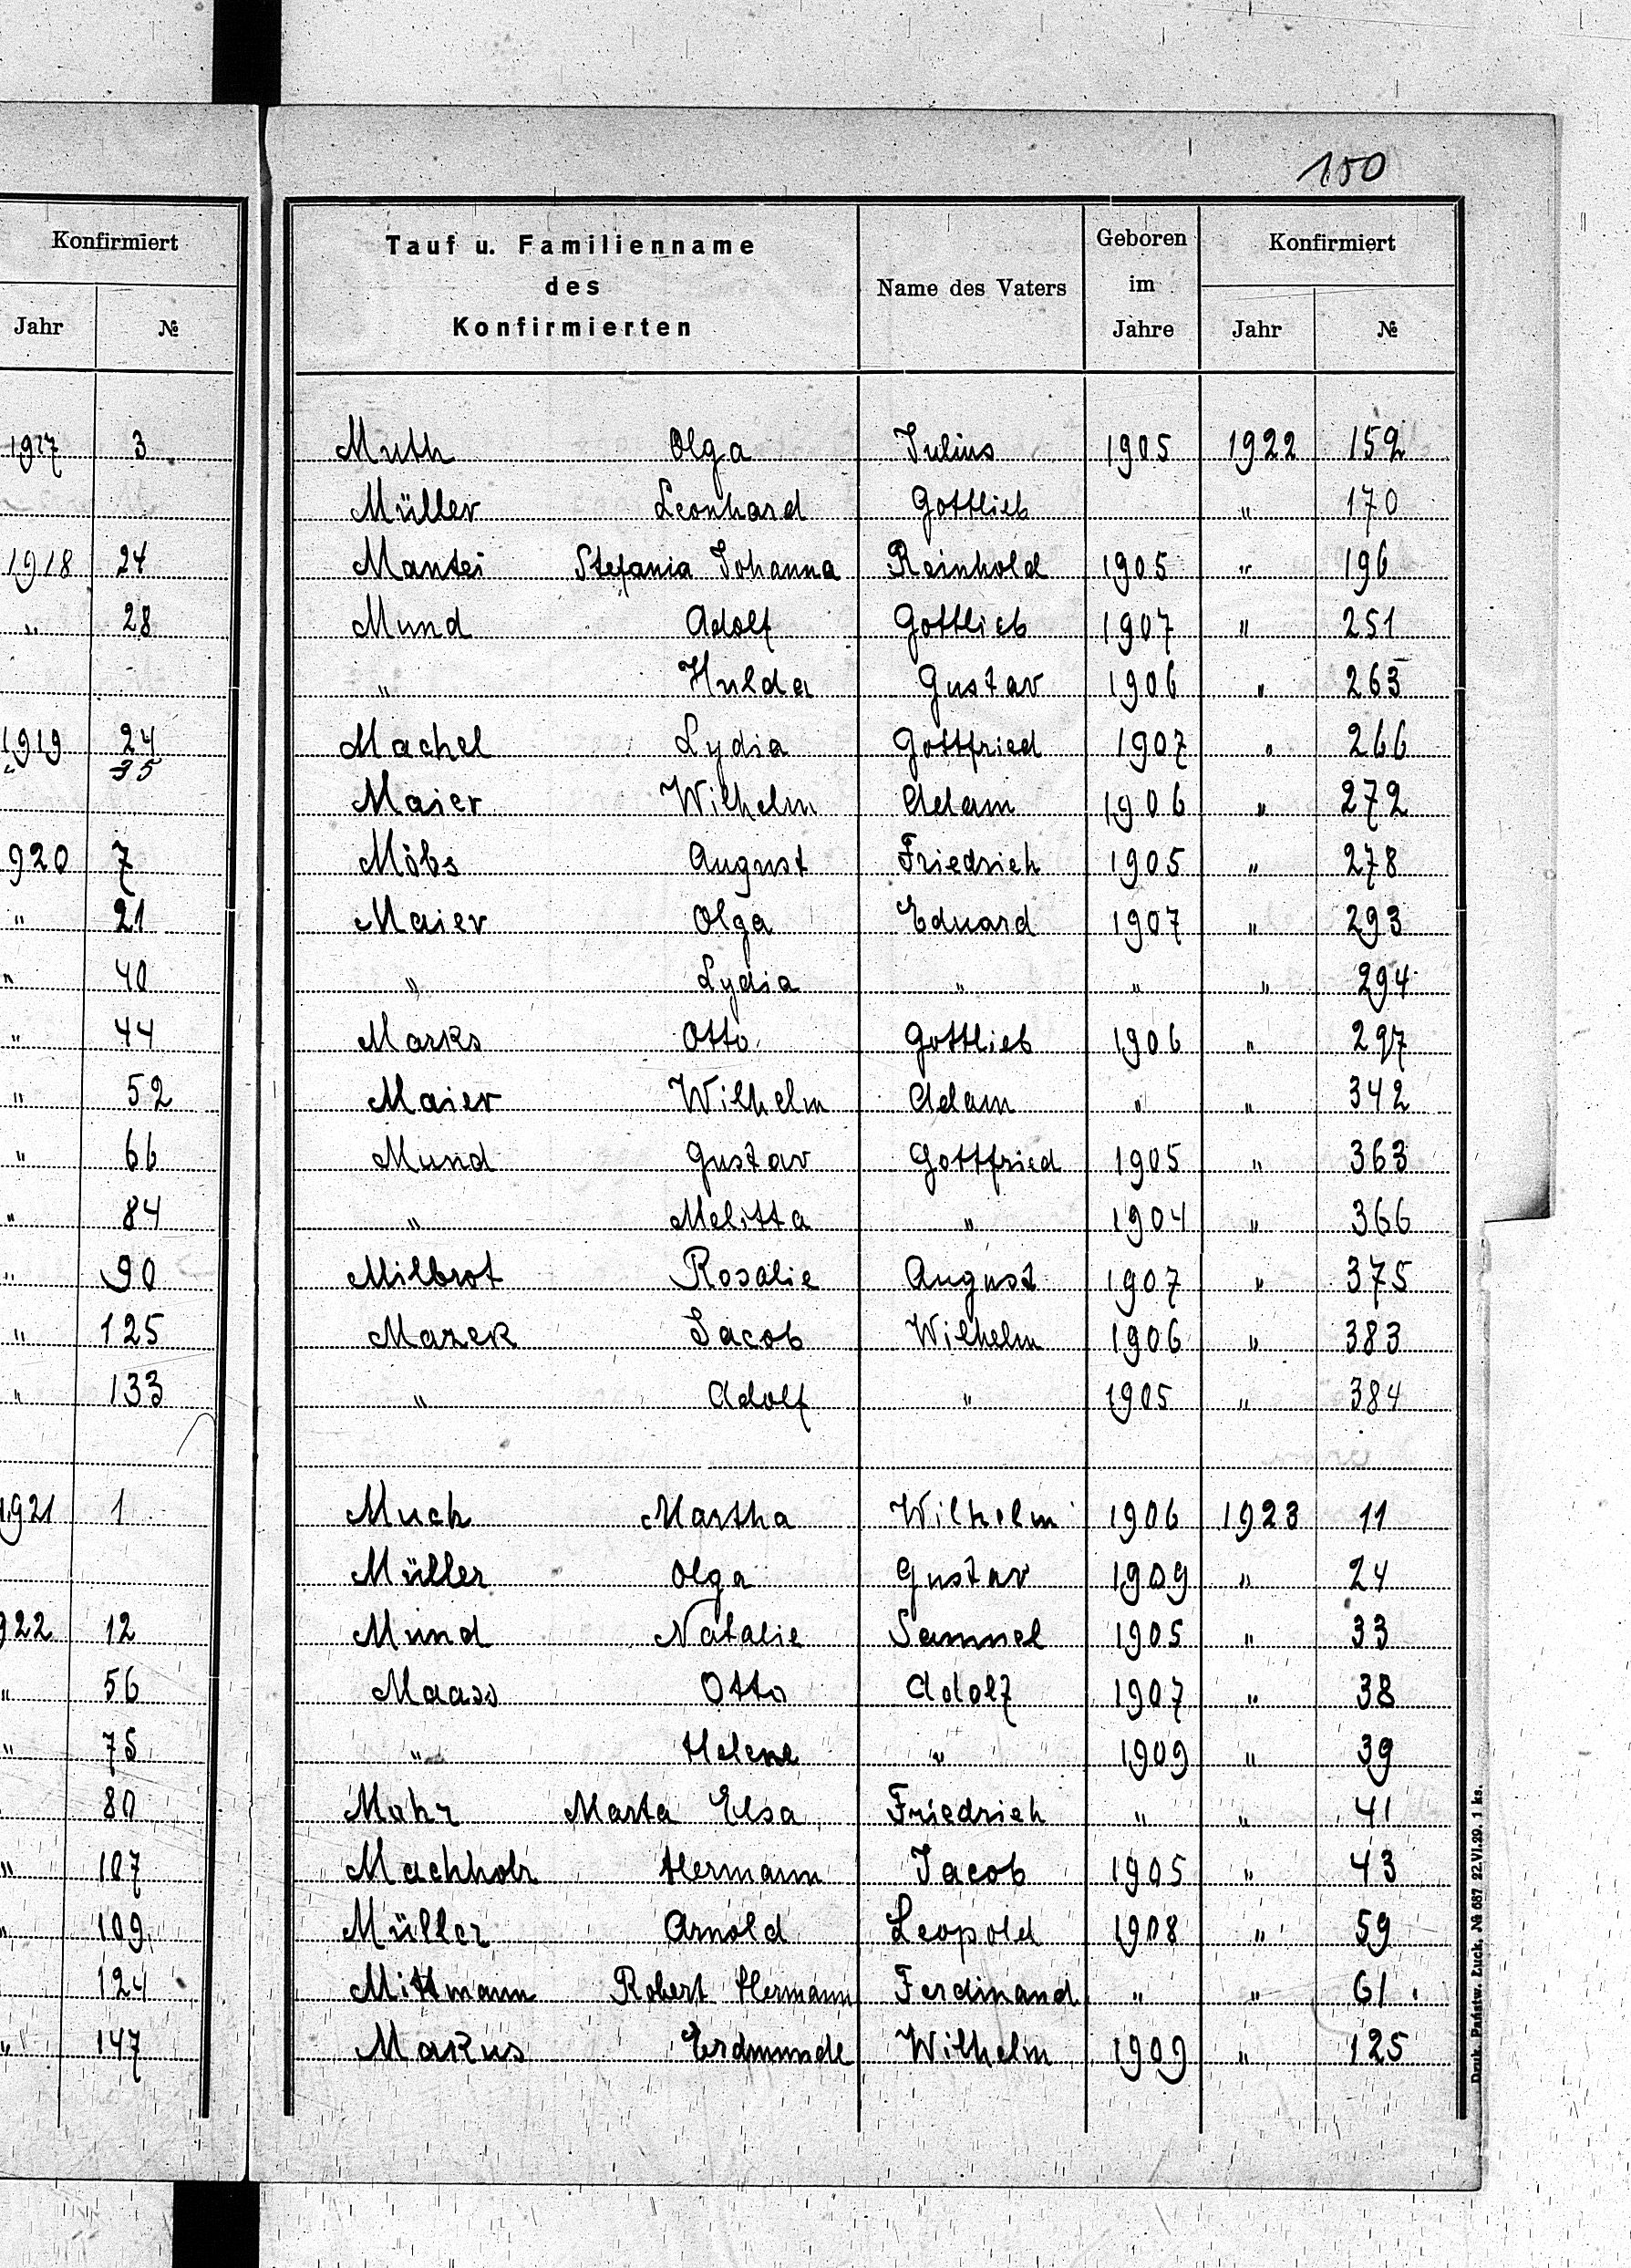 150
Konfirmiert
Jahr №
1917 3
1918 24
" 28
1919 24
" 35
920 7
" 21
" 40
" 44
" 52
" 66
" 84
" 90
" 125
" 133
1921 1
922 12
" 56
" 75
80
" 107
" 109
124
" 147
Tauf u. Familienname des Konfirmierten Name des Vaters Geboren im Jahre Konfirmiert Jahr №
Muth Olga Julius 1905 1922 159
Müller Leonhard Gottlieb " 170
Mantei Stefania Johanna Reinhold 1905 " 196
Mund Adolf Gottlieb 1907 " 251
" Hulda Gustav 1906 " 263
Machel Lydia Gottfried 1907 " 266
Maier Wilhelm Adam 1906 " 272
Möbs August Friedrich 1905 " 278
Maier Olga Eduard 1907 " 293
" Lydia " " " 294
Marks Otto Gottlieb 1906 " 297
Maier Wilhelm Adam " " 342
Mund Gustav Gottfried 1905 " 363
" Melitta " 1904 " 366
Milbrot Rosalie August 1907 " 375
Mazek Jacob Wilhelm 1906 " 383
" Adolf " 1905 " 384
Much Martha Wilhelm 1906 1923 11
Müller Olga Gustav 1909 " 24
Mund Natalie Samuel 1905 " 33
Maass Otto Adolf 1907 " 38
" Helene " 1909 " 39
Mahr Marta Elsa Friedrich " " 41
Machholz Hermann Jacob 1905 " 43
Müller Arnold Leopold 1908 " 59
Mittmann Robert Hermann Ferdinand " " 61
Markus Erdmunde Wilhelm 1909 " 125
Druk. Państw. Łuck. № 687 22.VI.29. 1 ks.